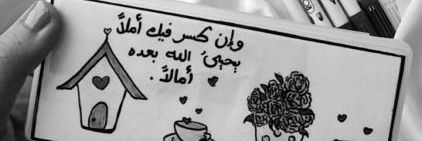 وإن كسر فيك أملاً
يحيي الله بعده
أمالاً.